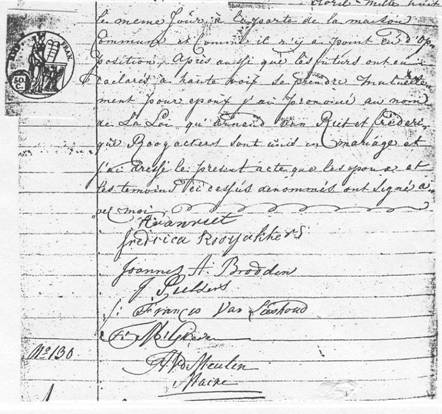 le même jour, à la porte de la maison
Commune et Comme il n'y a point eu d'op
position, Après aussi que les futurs ont eu
déclarés à haute voix se prendre mutuelle
ment pour epoux j'ai prononcé au nom
de La Loi qu' van Riet et Fréderi
que Rooyackers sont unis en mariage et
j'ai dressé le présent acte que les epoux et
les temoins ici dessus denommés ont signé a
vec moi
AvanRiet
fredrica Rooyakkers
Joannes A: Brodden
J Pulders
François Van
N.º 130
Meulen
Maire